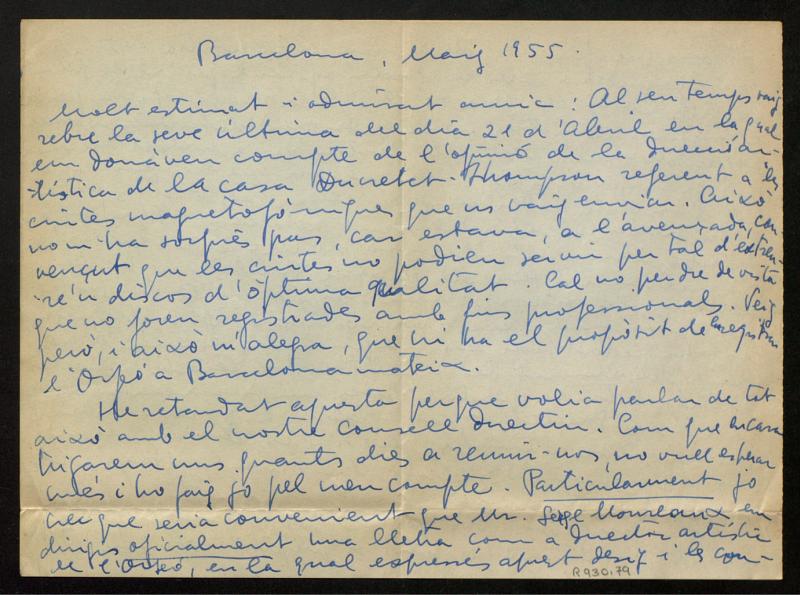 Barcelona, Maig 1955.
Molt estimat i admirat amic: Al seu temps vaig
rebre la seve última del dia 21 d'Abril en la qual
em donàven compte de l'opinió de la Direcció ar-
tística de la casa Ducretet-Thompson referent a les
cintes magnetofóniques que us vaig enviar. Això
no m'ha sorprès pas, car estava, a l'avençada, con-
vençut que les cintes no podien servir per tal d'extreu-
re'n discos d'òptima qualitat. Cal no perdre de vista
que no foren registrades amb fins professionals. Veig
però, i això m'alegra, que hi ha el propòsit de enregistrar
l'Orfeó a Barcelona mateix.
He retardat aquesta perque volia parlar de tot
això amb el nostre Consell Directiu. Com que encara
trigarem uns quants dies a reunir-nos, no vull esperar
més i ho faig jo pel meu compte. Particularment jo
crec que seria convenient que Mr. Serge Moreaux em
dirigís oficialment una lletra com a Director artístic
de l'Orfeó, en la qual expressés aquest desig i les con-
R 930.79